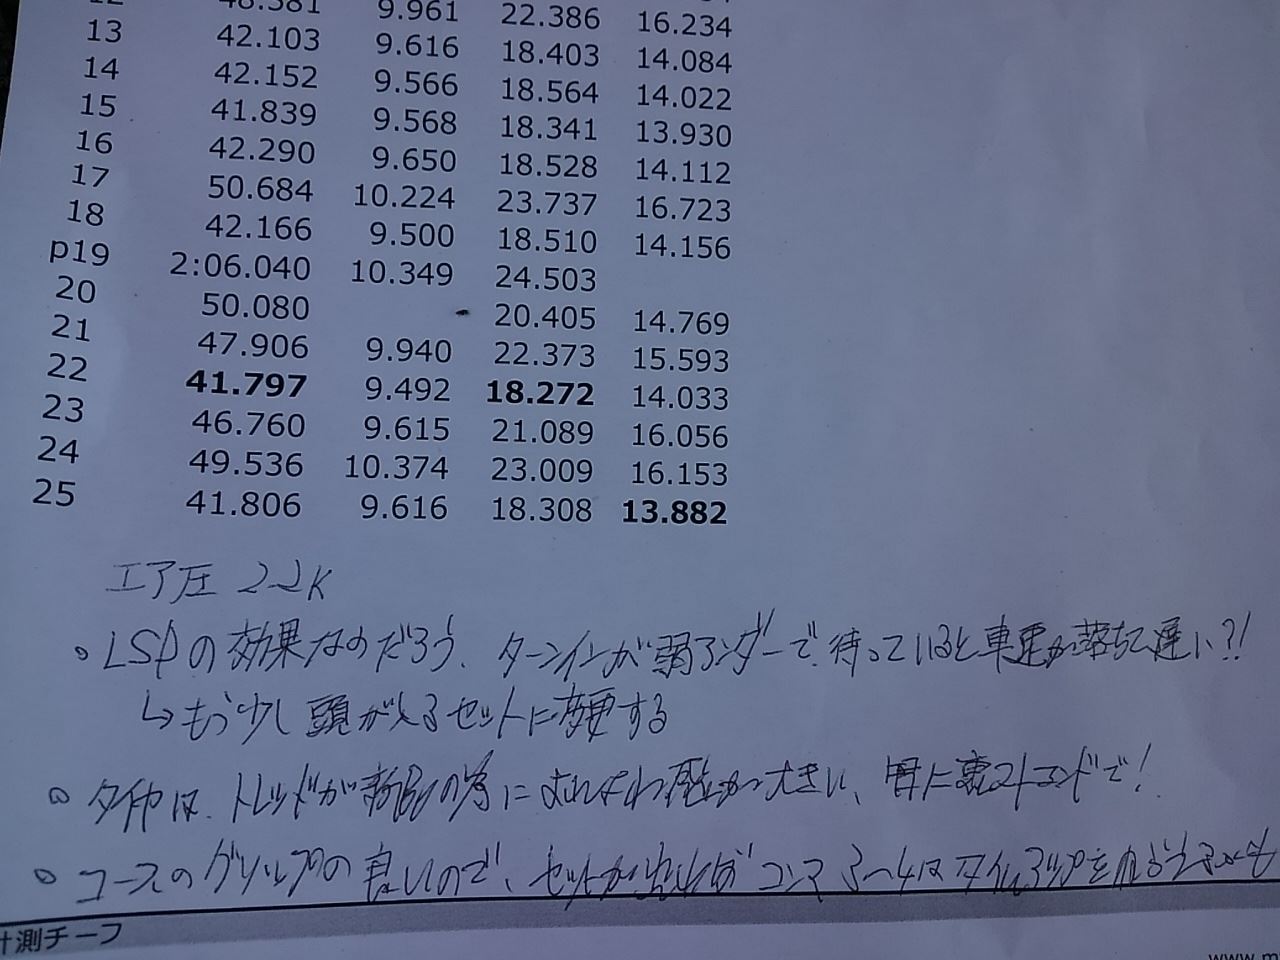 12 48.581 9.961 22.386 16.234
13 42.103 9.616 18.403 14.084
14 42.152 9.566 18.564 14.022
15 41.839 9.568 18.341 13.930
16 42.290 9.650 18.528 14.112
17 50.684 10.224 23.737 16.723
18 42.166 9.500 18.510 14.156
p19 2:06.040 10.349 24.503
20 50.080 20.405 14.769
21 47.906 9.940 22.373 15.593
22 41.797 9.492 18.272 14.033
23 46.760 9.615 21.089 16.056
24 49.536 10.374 23.009 16.153
25 41.806 9.616 18.308 13.882
エア圧 2.2K
。LSDの効果なのだろう、ターンインが弱アンダーで、待っていると車速が落ちて遅い?!
↳もう少し頭が入るセットに変更する
。タイヤは、トレッドが新品の為によれ 感が大きい、
。コースのグリップの良いので、セットが出ればコンマ3〜4はタイムアップを
計測チーフ
www.m